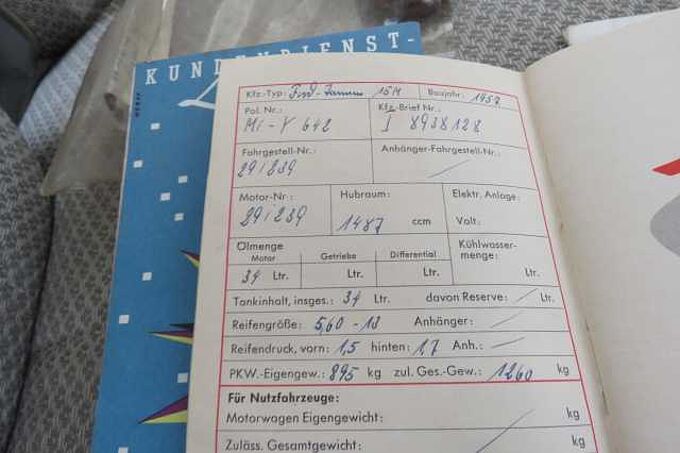 KUNDENDIENST-
Kfz.-Typ: Ford-Taunus 15M Baujahr: 1957
Pol. Nr.: Kfz-Brief Nr.:
MI-Y 642 I 8938128
Fahrgestell-Nr.: Anhänger-Fahrgestell-Nr.:
291239
Motor-Nr.: Hubraum: Elektr. Anlage:
291239 1487 ccm Volt:
Ölmenge Kühlwasser-
Motor Getriebe Differential menge:
34 Ltr. Ltr. Ltr. Ltr.
Tankinhalt, insges.: 34 Ltr. davon Reserve: Ltr.
Reifengröße: 5,60-13 Anhänger:
Reifendruck, vorn: 1,5 hinten: 1,7 Anh.:
PKW.-Eigengew.: 895 kg zul. Ges.-Gew.: 1260 kg
Für Nutzfahrzeuge:
Motorwagen Eigengewicht: kg
Zuläss. Gesamtgewicht: kg